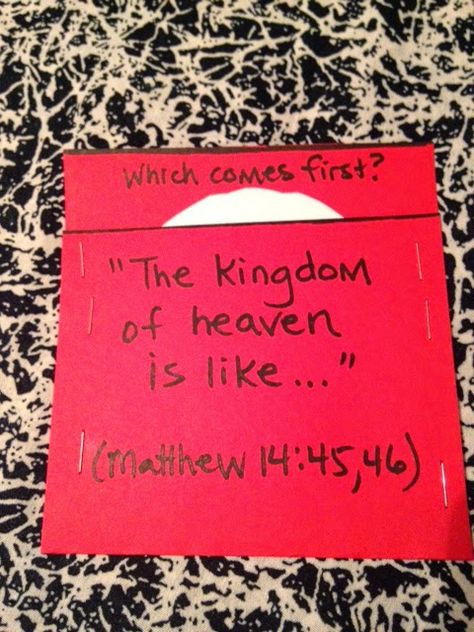 Which comes first?
"The kingdom
of heaven
is like..."
(Matthew 14:45,46)